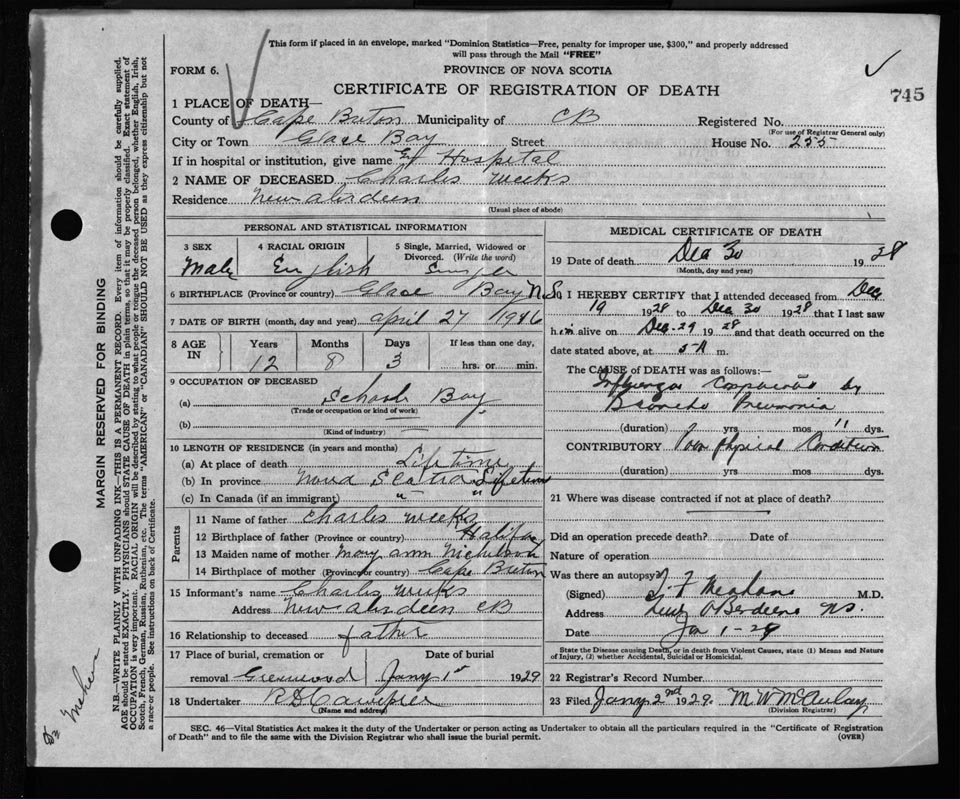 This form if placed in an envelope, marked "Dominion Statistics—Free, penalty for improper use, $300," and properly addressed
will pass through the Mail "FREE"
FORM 6.
PROVINCE OF NOVA SCOTIA
CERTIFICATE OF REGISTRATION OF DEATH
745
1 PLACE OF DEATH—
County of Cape Breton Municipality of CB Registered No.
(For use of Registrar General only)
City or Town Glace Bay Street House No. 255
If in hospital or institution, give name Hospital
2 NAME OF DECEASED Charles Weeks
Residence New Aberdeen
(Usual place of abode)
PERSONAL AND STATISTICAL INFORMATION
3 SEX 4 RACIAL ORIGIN 5 Single, Married, Widowed or
Divorced. (Write the word)
Male English Single
6 BIRTHPLACE (Province or country) Glace Bay N.S.
7 DATE OF BIRTH (month, day and year) April 27 1916
8 AGE IN Years Months Days If less than one day,
12 8 3 hrs. or min.
9 OCCUPATION OF DECEASED
(a) School Boy
(Trade or occupation or kind of work)
(b)
(Kind of industry)
10 LENGTH OF RESIDENCE (in years and months)
(a) At place of death Lifetime
(b) In province Nova Scotia Lifetime
(c) In Canada (if an immigrant) " "
Parents
11 Name of father Charles Weeks
12 Birthplace of father (Province or country) Halifax
13 Maiden name of mother Mary Ann Nicholson
14 Birthplace of mother (Province or country) Cape Breton
15 Informant's name Charles Weeks
Address New Aberdeen CB
16 Relationship to deceased father
17 Place of burial, cremation or Date of burial
removal Greenwood Jany 1st 1929
18 Undertaker
(Name and address)
MEDICAL CERTIFICATE OF DEATH
19 Date of death Dec 30 1928
(Month, day and year)
20 I HEREBY CERTIFY that I attended deceased from Dec
19 1928 to Dec 30 1928 that I last saw
him alive on Dec. 29 1928 and that death occurred on the
date stated above, at 5 A m.
The CAUSE of DEATH was as follows:—
Influenza by
Broncho Pneumonia
(duration) yrs mos 11 dys.
CONTRIBUTORY Poor physical Condition
(duration) yrs mos dys.
21 Where was disease contracted if not at place of death?
Did an operation precede death? Date of
Nature of operation
Was there an autopsy?
(Signed) M.D.
Address New Aberdeen NS.
Date Jan 1-29
State the Disease causing Death, or in death from Violent Causes, state (1) Means and Nature
of Injury, (2) whether Accidental, Suicidal or Homicidal.
22 Registrar's Record Number
23 Filed Jany 2nd 1929. M. W. McAulay
(Division Registrar)
SEC. 46—Vital Statistics Act makes it the duty of the Undertaker or person acting as Undertaker to obtain all the particulars required in the "Certificate of Registration
of Death" and to file the same with the Division Registrar who shall issue the burial permit. (OVER)
MARGIN RESERVED FOR BINDING
N.B.—WRITE PLAINLY WITH UNFADING INK—THIS IS A PERMANENT RECORD. Every item of information should be carefully supplied.
AGE should be stated EXACTLY. PHYSICIANS should STATE CAUSE OF DEATH in plain terms, so that it may be properly classified. Exact statement of
OCCUPATION is very important. RACIAL ORIGIN will be described by stating to what people or race the deceased person belonged, whether English, Irish,
Scotch, French, German, Russian, Ruthenian, etc. The terms "AMERICAN" or "CANADIAN" SHOULD NOT BE USED as they express citizenship but not
a race or people. See instructions on back of Certificate.